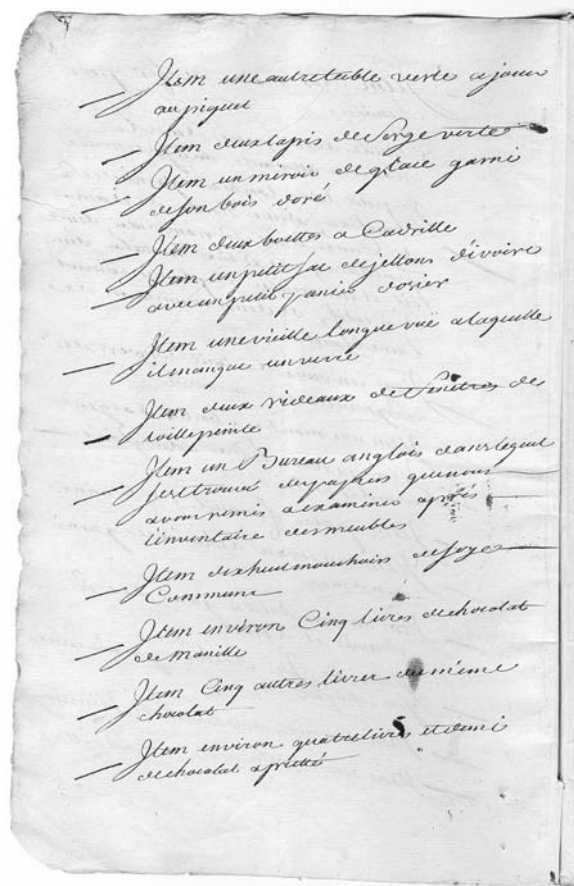 Item une autre table verte a jouer
au piquet
Item deux tapis de Serge verte
Item un miroir de glace garni
de son bois doré
Item deux boettes a Cadrille
Item un petit sac de jettons d'ivoire
avec un petit panier dosier
Item une vieille longue vuë a laquelle
il manque un verre
Item deux rideaux de fenêtres de
toille peinte
Item un Bureau anglois dans lequel
sest trouvé des papiers que nous
avons remis a examiner après
l'inventaire des meubles
Item dix huit mouchoirs de soye
Commune
Item environ Cinq livres de chocolat
de Manille
Item Cinq autres livres du même
chocolat
Item environ quatre livres et demi
de chocolat apretté